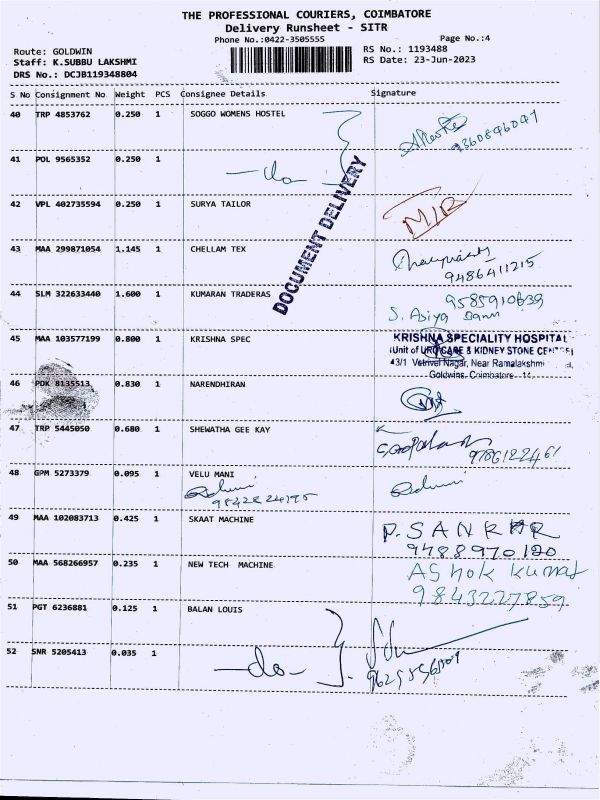 THE PROFESSIONAL COURIERS, COIMBATORE
Delivery Runsheet - SITR
Phone No.:0422-3505555 Page No.:4
Route: GOLDWIN RS No.: 1193488
Staff: K.SUBBU LAKSHMI RS Date: 23-Jun-2023
DRS No.: DCJB119348804
S No Consignment No Weight PCS Consignee Details Signature
40 TRP 4853762 0.250 1 SOGGO WOMENS HOSTEL
9360896091
41 POL 9565352 0.250 1
-do-
DOCUMENT DELIVERY
42 VPL 402735594 0.250 1 SURYA TAILOR
M/R
43 MAA 299871054 1.145 1 CHELLAM TEX
9486411215
44 SLM 322633440 1.600 1 KUMARAN TRADERAS
9585910639
S. Asiya Banu
45 MAA 103577199 0.800 1 KRISHNA SPEC
KRISHNA SPECIALITY HOSPITAL
(Unit of URO CARE & KIDNEY STONE
43/1 Vetrivel Nagar, Near Ramalakshmi
Goldwins, Coimbatore - 14.
46 PDK 8135513 0.830 1 NARENDHIRAN
47 TRP 5445050 0.680 1 SHEWATHA GEE KAY
9786122461
48 GPM 5273379 0.095 1 VELU MANI
9842824195
49 MAA 102083713 0.425 1 SKAAT MACHINE
P. SANKAR
9488970120
50 MAA 568266957 0.235 1 NEW TECH MACHINE
Ashok kumar
9843227859
51 PGT 6236881 0.125 1 BALAN LOUIS
52 SNR 5205413 0.035 1
-do-